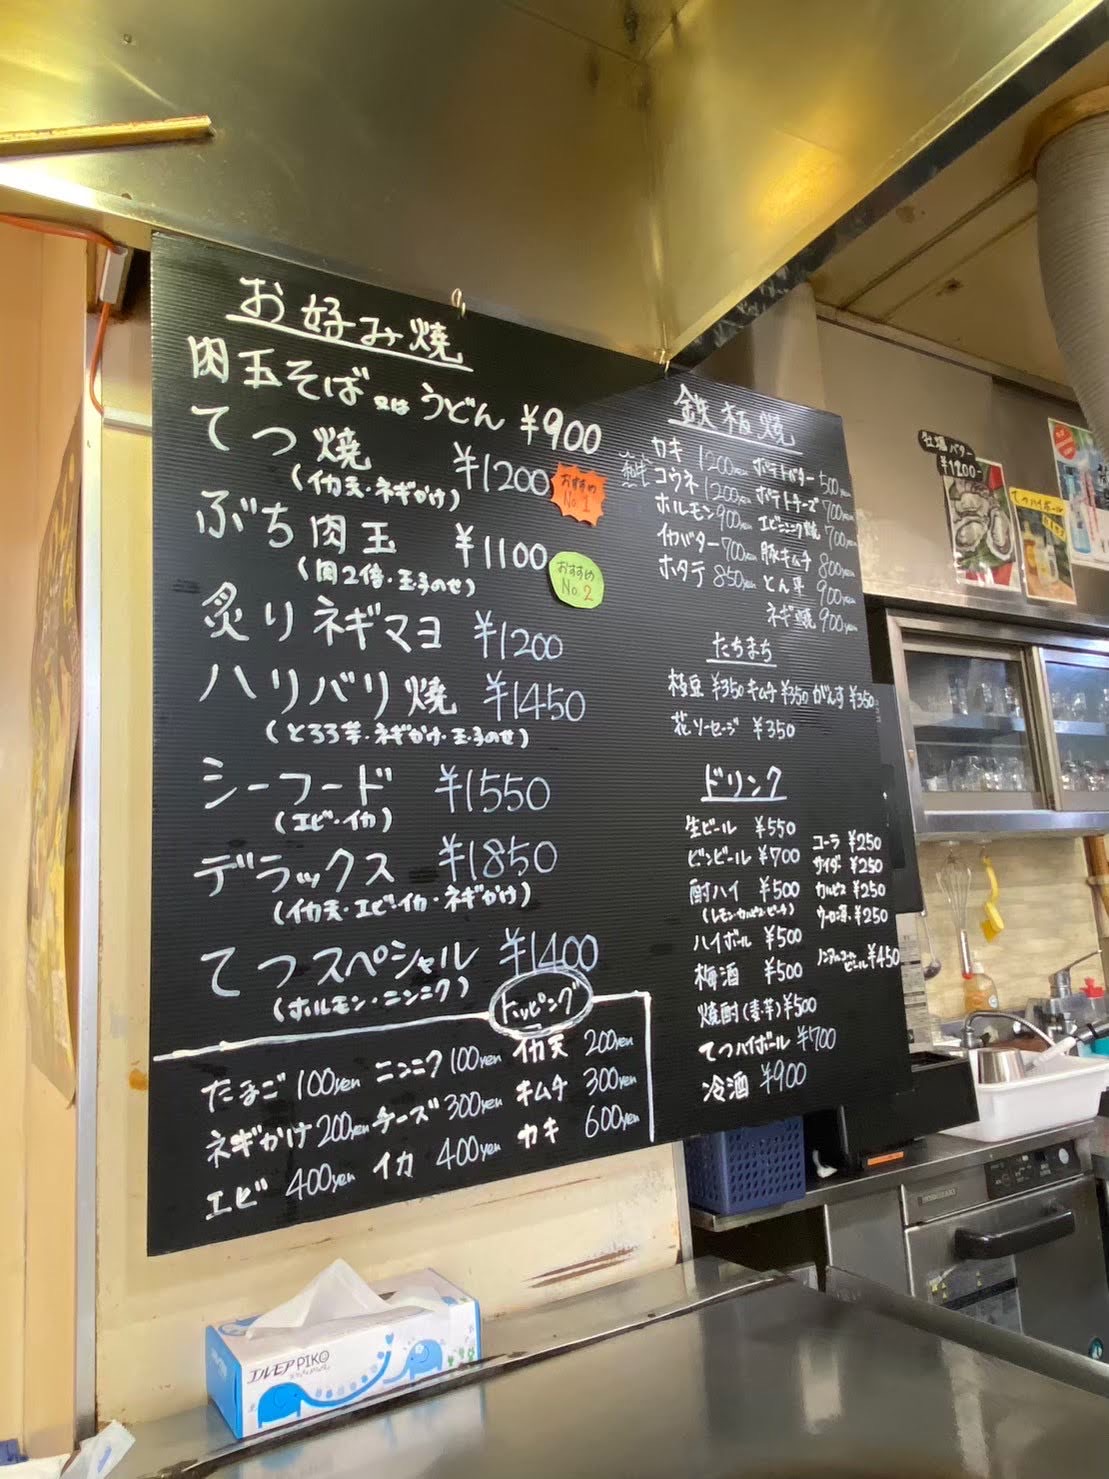 お好み焼
肉玉そば又はうどん ¥900
てつ焼 ¥1200
(イカ天・ネギかけ)
おすすめ
No.1
ぶち肉玉 ¥1100
(肉2倍・玉子のせ)
おすすめ
No.2
炙りネギマヨ ¥1200
ハリバリ焼 ¥1450
(とろろ芋・ネギかけ・玉子のせ)
シーフード ¥1550
(エビ・イカ)
デラックス ¥1850
(イカ天・エビ・イカ・ネギかけ)
てつスペシャル ¥1400
(ホルモン・ニンニク)
トッピング
たまご 100yen ニンニク 100yen イカ天 200yen
ネギかけ 200yen チーズ 300yen キムチ 300yen
エビ 400yen イカ 400yen カキ 600yen
鉄板焼
カキ 1200yen ポテトバター 500yen
コウネ 1200yen ポテトチーズ 700yen
ホルモン 900yen エビニンニク焼 700yen
イカバター 700yen 豚キムチ 800yen
ホタテ 850yen とん平 900yen
ネギ焼 900yen
たちまち
枝豆 ¥350 キムチ ¥350 がんす ¥350
花ソーセージ ¥350
ドリンク
生ビール ¥550
ビンビール ¥700
酎ハイ ¥500
(レモン・カルピス・ピーチ)
ハイボール ¥500
梅酒 ¥500
焼酎(麦・芋) ¥500
てつハイボール ¥700
冷酒 ¥900
コーラ ¥250
サイダー ¥250
カルピス ¥250
ウーロン茶 ¥250
ノンアルコールビール ¥450
牡蠣バター
¥1200-
てつハイボール
エルモアPIKO